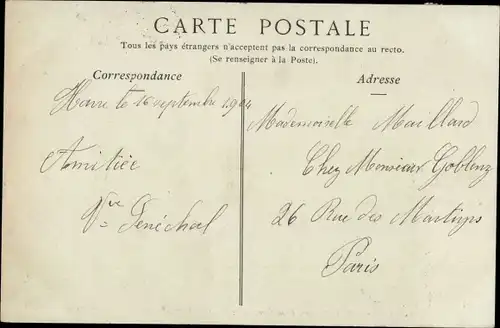 CARTE POSTALE
Tous les pays étrangers n'acceptent pas la correspondance au recto.
(Se renseigner à la Poste).
Correspondance
Adresse
Havre le 16 septembre 1904
Amitiée
Vve Sénéchal
Mademoiselle Maillard
Chez Monsieur Goblenz
26 Rue des Martyrs
Paris